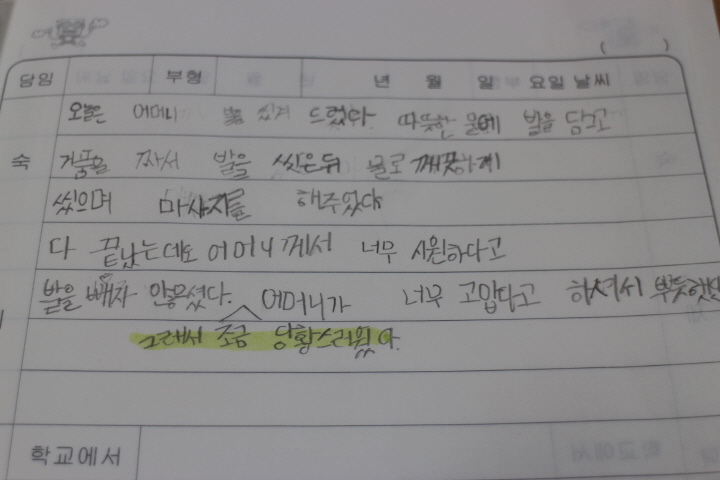 ( )
담임 부형 년 월 일 요일 날씨
오늘은 어머니 발 씻겨 드렸다. 따뜻한 물에 발을 담그고
숙 거품을 짜서 발을 씻은뒤 물로 깨끗하게
씼으며 마사지를 해주었다
다 끝났는데도 어머니께서 너무 시원하다고
발을 빼자 않으셨다. 어머니가 너무 고맙다고 하셔서 뿌듯했
그래서 조금 당황스러웠다.
학교에서